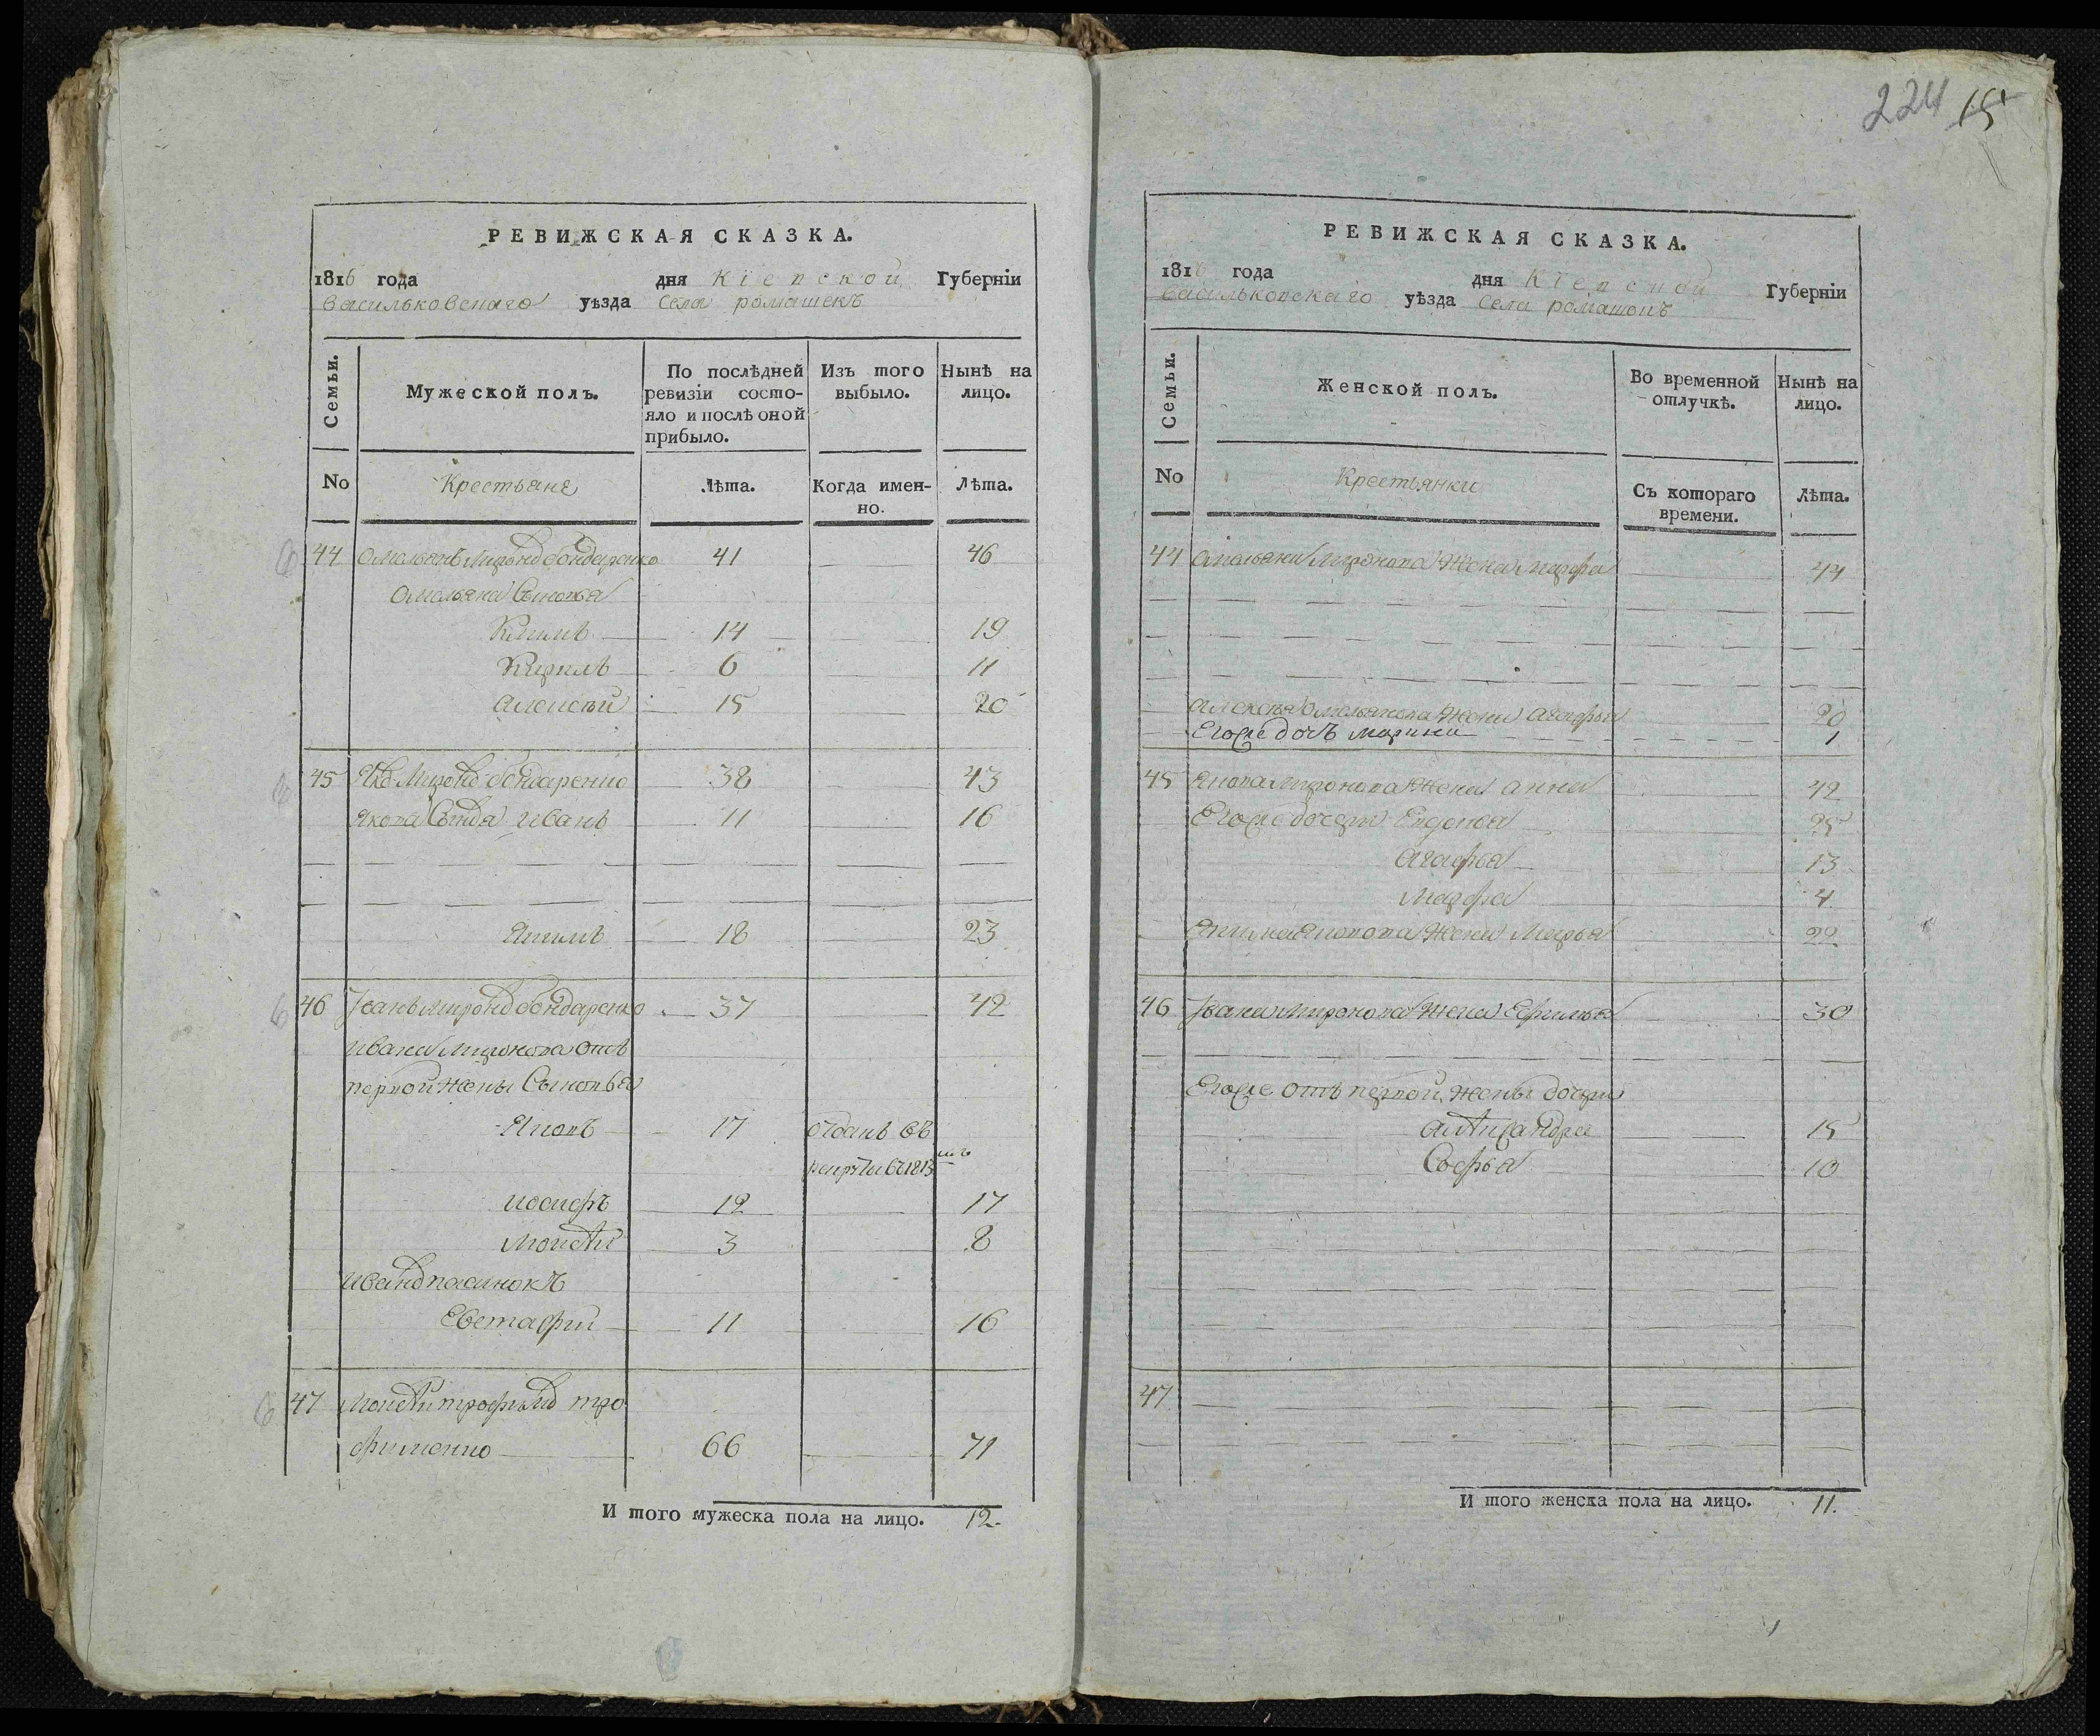 РЕВИЖСКАЯ СКАЗКА.
1816 года дня Кіевской Губерніи
васильковскаго уѣзда Села ромашекъ
Семьи.
Мужеской полъ.
По послѣдней ревизіи состо-
яло и послѣ оной
прибыло.
Изъ того
выбыло.
Нынѣ на
лицо.
No
Крестьяне
Лѣта.
Когда имен-
но.
Лѣта.
44 Омельянъ Миронов бондаренко 41 46
Омельяна Сыновья
Климъ 14 19
Кирилъ 6 11
Алексѣй 15 20
45 Яков Миронов бондаренко 38 43
Якова Сынъ Иванъ 11 16
Якимъ 18 23
46 Іванъ Миронов бондаренко 37 42
Ивана Миронова отъ
первой жены Сыновья
Яковъ 17 отданъ въ
рекруты въ 1813мъ
иосифъ 12 17
Моисѣй 3 8
Иванов пасинокъ
Евстафій 11 16
47 Моисѣй трофимов тро
фименко 66 71
И того мужеска пола на лицо. 12.
224 15
РЕВИЖСКАЯ СКАЗКА.
1816 года дня Кіевской Губерніи
васильковскаго уѣзда Села ромашокъ
Семьи.
Женской полъ.
Во временной
отлучкѣ.
Нынѣ на
лицо.
No
Крестьянки
Съ котораго
времени.
Лѣта.
44 Омельяна Миронова жена Марфа 44
Алексѣя Омельянова жена Агафья 20
Егоже дочъ марина 1
45 Якова Миронова жена анна 42
Егоже дочери Евдокья 25
Агафья 13
Марфа 4
Екима Яковова жена Марья 22
46 Івана Миронова жена Ефимья 30
Егоже отъ первой жены дочери
алѣксандра 15
Софья 10
47
И того женска пола на лицо. 11.